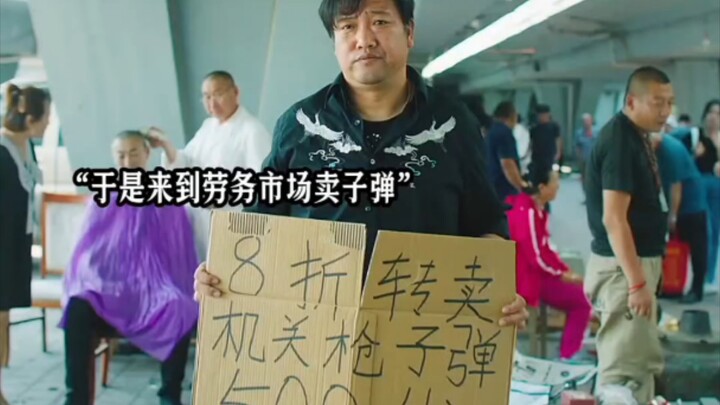 “于是来到劳务市场卖子弹”
8折转卖
机关枪子弹
500